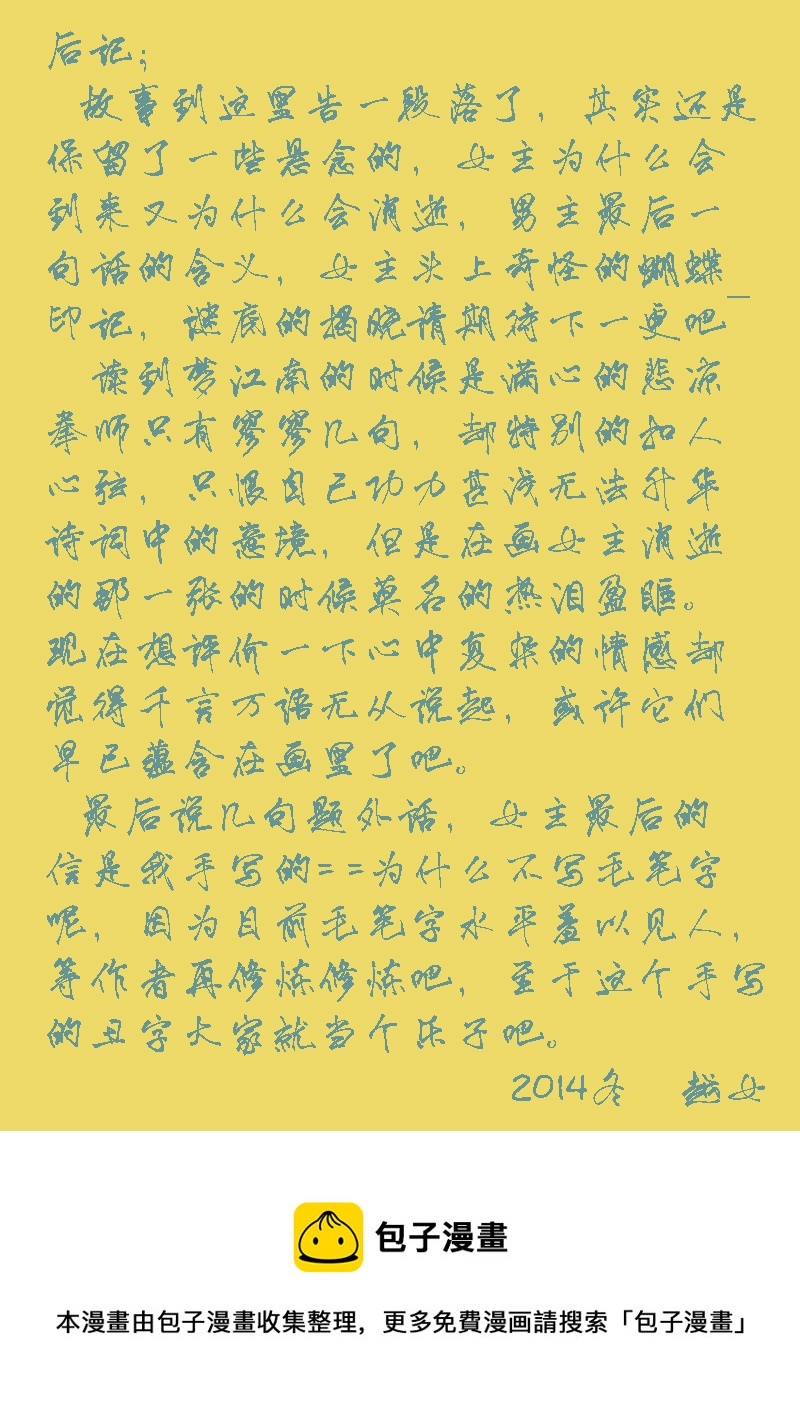 后记；
故事到这里告一段落了，其实还是
保留了一些悬念的，女主为什么会
到来又为什么会消逝，男主最后一
句话的含义，女主头上奇怪的蝴蝶_
印记，谜底的揭晓请期待下一更吧
读到梦江南的时候是满心的悲凉
拳师只有寥寥几句，却特别的扣人
心弦，只恨自己功力甚浅无法升华
诗词中的意境，但是在画女主消逝
的那一张的时候莫名的热泪盈眶。
现在想评价一下心中复杂的情感却
觉得千言万语无从说起，或许它们
早已蕴含在画里了吧。
最后说几句题外话，女主最后的
信是我手写的==为什么不写毛笔字
呢，因为目前毛笔字水平羞以见人，
等作者再修炼修炼吧，至于这个手写
的丑字大家就当个乐子吧。
2014冬 越女
包子漫畫
本漫畫由包子漫畫收集整理，更多免費漫画請搜索「包子漫畫」